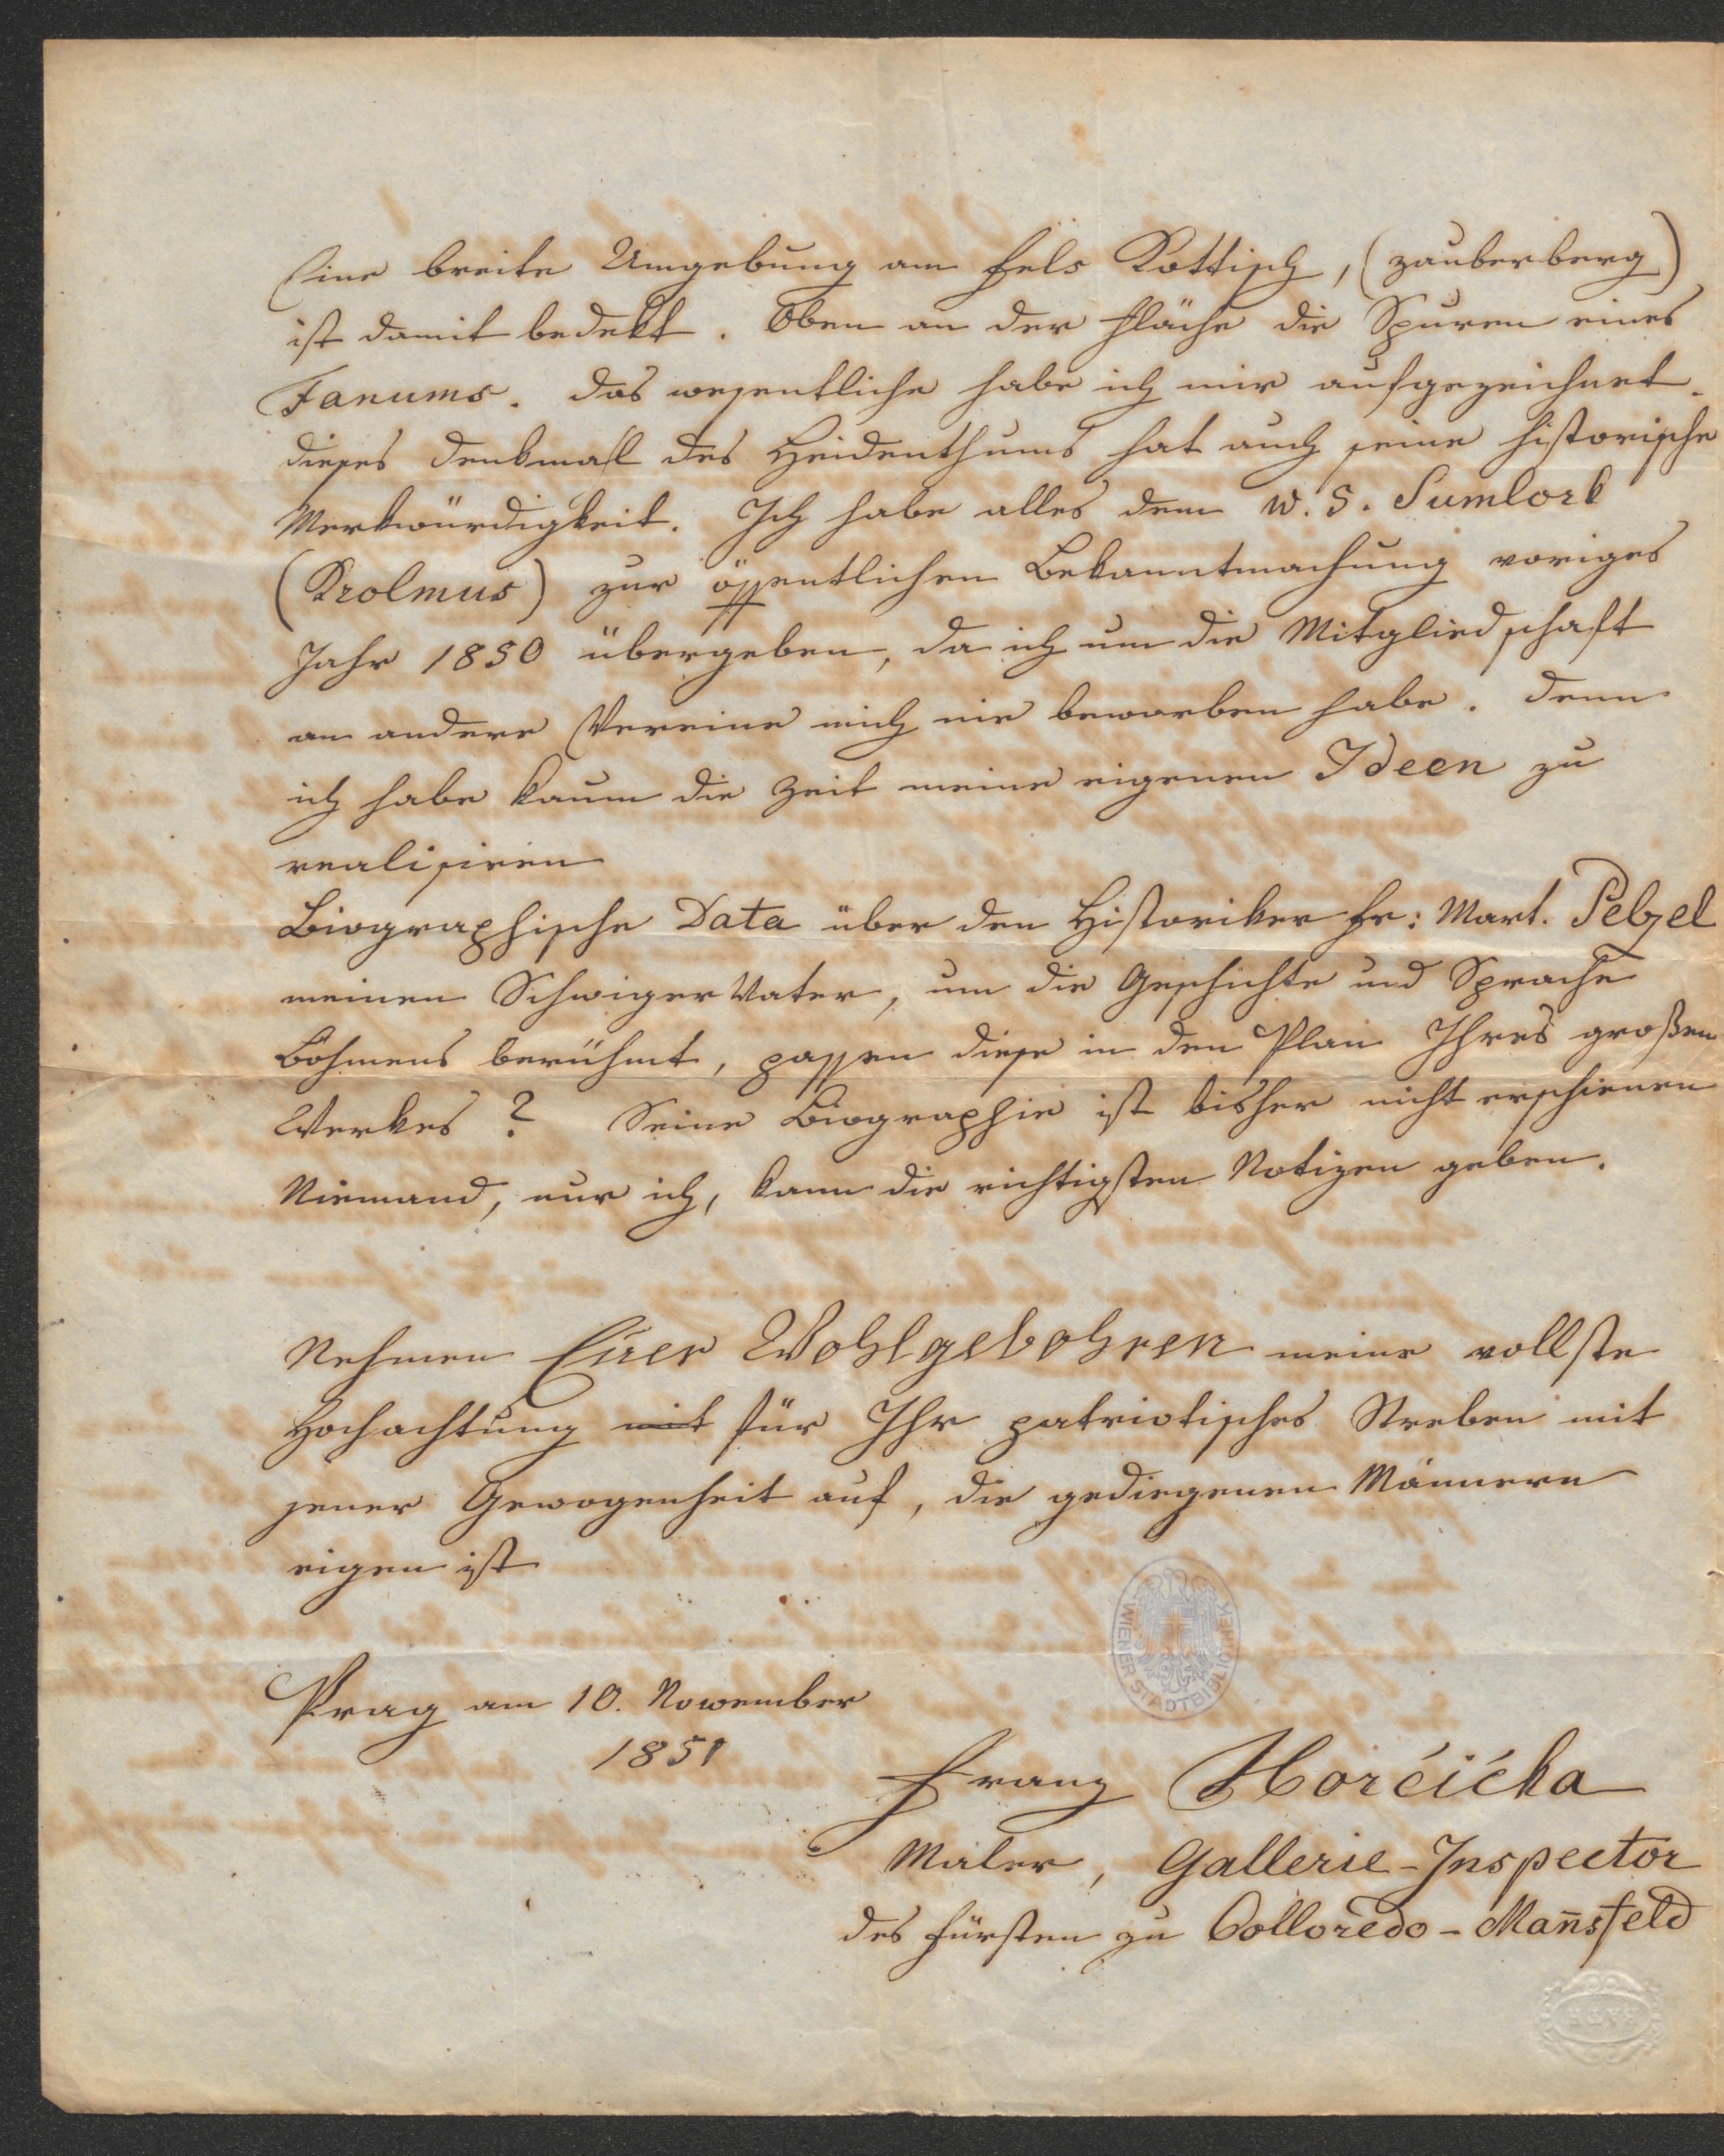 Eine breite Umgebung am Fels Kottisch, (Zauberberg)
ist damit bedekt. Oben an der Fläche die Spuren eines
Fanums. Das wesentliche habe ich mir aufgezeichnet.
Dieses Denkmahl des Heidenthums hat auch seine historische
Merkwürdigkeit. Ich habe alles dem W. S. Sumlork
(Krolmus) zur öffentlichen Bekanntmachung voriges
Jahr 1850 übergeben, da ich um die Mitgliedschaft
an andere Vereine mich nie beworben habe. Denn
ich habe kaum die Zeit meine eigenen Ideen zu
realisiren
Biographische Data über den Historiker Fr: Mart. Pelzel
meinen Schwiger Vater, um die Geschichte und Sprache
Böhmens berühmt, passen diese in den Plan Ihres großen
Werkes? Seine Biographie ist bisher nicht erschienen
Niemand, nur ich, kann die richtigsten Notizen geben.
Nehmen Euer Wohlgebohren meine vollste
Hochachtung mit für Ihr patriotisches Streben mit
jener Gewogenheit auf, die gediegenen Männern
eigen ist
WIENER STADTBIBLIOTHEK
Prag am 10. November
1851
Franz Horčička
Maler, Gallerie-Inspector
des Fürsten zu Colloredo-Man̄sfeld
BATH